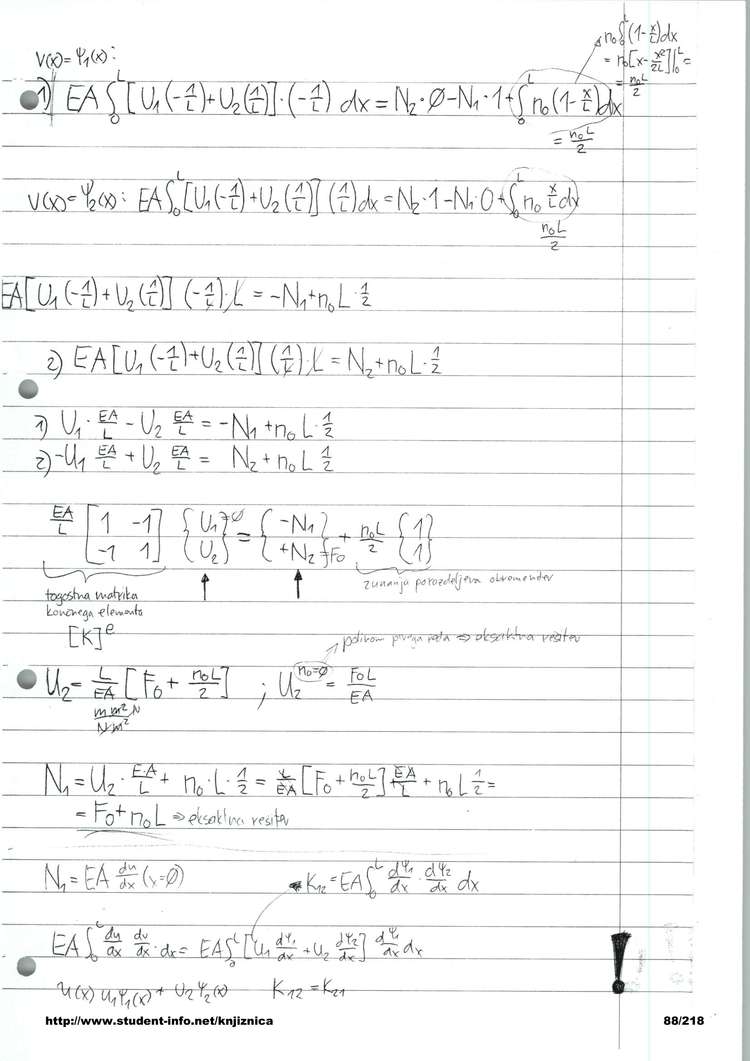 V(x) = Ψ₁(x):
n₀∫₀ᴸ(1-x/L)dx
= n₀[x - x²/2L]|₀ᴸ =
= n₀L/2
1) EA∫₀ᴸ[U₁(-1/L)+U₂(1/L)]·(-1/L) dx = N₂·Ø - N₁·1 + ∫₀ᴸ n₀(1-x/L)dx
= n₀L/2
V(x) = Ψ₂(x): EA∫₀ᴸ[U₁(-1/L)+U₂(1/L)](1/L)dx = N₂·1 - N₁·0 + ∫₀ᴸ n₀ x/L dx
n₀L/2
EA[U₁(-1/L)+U₂(1/L)](-1/L)·L = -N₁+n₀L·1/2
2) EA[U₁(-1/L)+U₂(1/L)](1/L)·L = N₂+n₀L·1/2
1) U₁·EA/L - U₂ EA/L = -N₁+n₀L·1/2
2) -U₁ EA/L + U₂ EA/L = N₂+n₀L·1/2
EA/L [1 -1; -1 1] {U₁=Ø; U₂} = {-N₁; +N₂=F₀} + n₀L/2 {1; 1}
togostna matrika
končnega elementa
zunanja porazdeljena obremenitev
[K]ᵉ
polinom prvega reda ⇒ eksaktna rešitev
U₂ = L/EA [F₀ + n₀L/2] ; U₂ⁿ⁰⁼Ø = F₀L/EA
m m² N/N m²
N₁ = U₂·E·A/L + n₀·L·1/2 = L/EA [F₀ + n₀L/2] EA/L + n₀L 1/2 =
= F₀+n₀L ⇒ eksaktna rešitev
N₁ = EA du/dx (x=Ø)
K₁₂ = EA∫₀ᴸ dΨ₁/dx · dΨ₂/dx dx
EA∫₀ᴸ du/dx dv/dx · dx = EA∫₀ᴸ[U₁ dΨ₁/dx + U₂ dΨ₂/dx] dΨ₁/dx dx
!
u(x) U₁Ψ₁(x) + U₂Ψ₂(x) K₁₂ = K₂₁
http://www.student-info.net/knjiznica 88/218